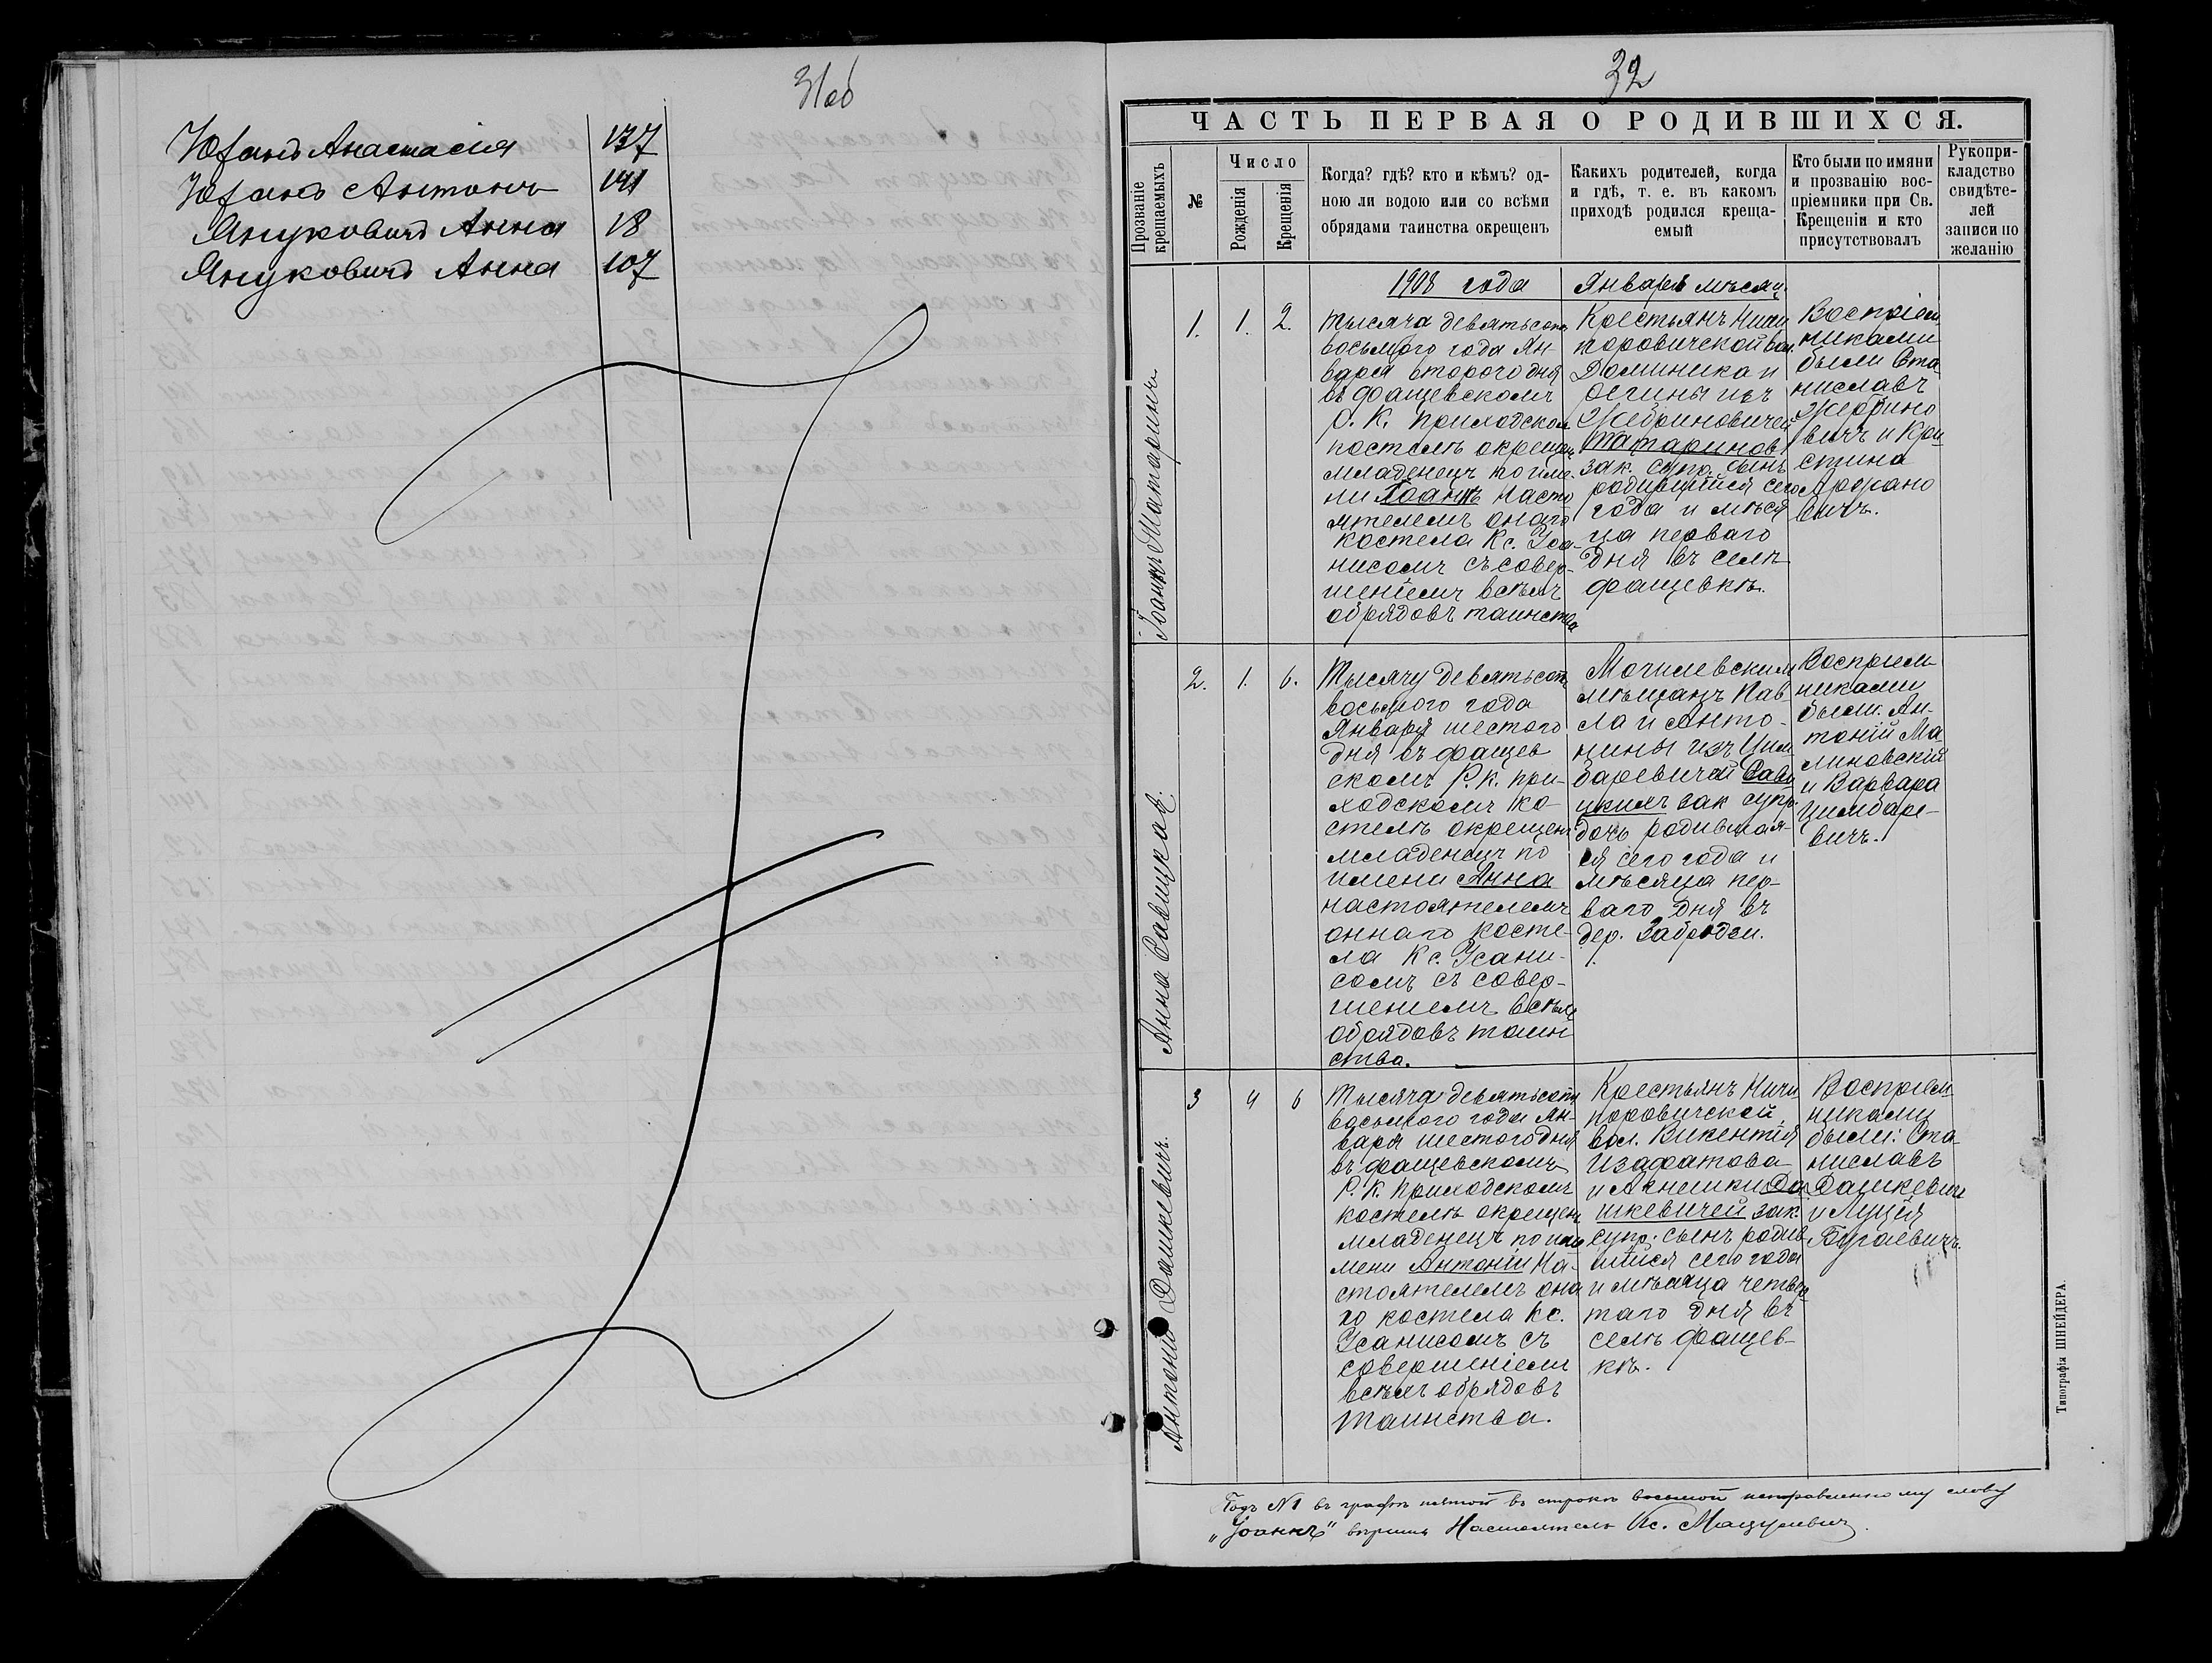 31об
Юфанъ Анастасія 137
Юфанъ Антонъ 141
Януковичъ Анна 18
Януковичъ Анна 107
32
ЧАСТЬ ПЕРВАЯ О РОДИВШИХСЯ.
Прозваніе
крещаемыхъ
№
Число
Рожденія
Крещенія
Когда? гдѣ? кто и кѣмъ? од-
ною ли водою или со всѣми
обрядами таинства окрещенъ
Каких​ъ родителей, когда
и гдѣ, т. е. въ какомъ
приходѣ родился креща-
емый
Кто были по имяни
и прозванію вос-
пріемники при Св.
Крещеніи и кто
присутствовалъ
Рукопри-
кладство
свидѣте-
лей
записи по
желанію
1908 года Января мѣсяц.
Іоаннъ Татаринъ
1. 1. 2.
Тысяча девятьсотъ
восьмого года Ян-
варя второго дня
въ Фащевскомъ
Р. К. приходском
костелѣ окрещен
младенецъ по име-
ни Іоаннъ Насто
ятелемъ онаго
костела Кс. Уса-
нисомъ съ совер-
шеніемъ всѣхъ
обрядовъ таинства
Крестьянъ Ничи
поровичской вол.
Доминика и
изъ
Жебриновичей
Татаринов
зак. супр. сынъ
родившійся сего
года и мѣся
ца перваго
дня въ селѣ
Фащевкѣ.
Воспріем
никами
были Ста
ниславъ
Жербино
вичъ и Кри
стина
вичъ.
Анна Савицкая.
2. 1. 6.
Тысячу девятьсотъ
восьмого года
Января шестого
дня въ Фащев
скомъ Р. К. при-
ходскомъ ко-
стелѣ окрещенъ
младенецъ по
имени Анна
настоятелемъ
оннаго косте-
ла Кс. Усани-
сомъ съ совер-
шенiемъ всѣхъ
обрядовъ таин
ства.
Могилевским
мѣщанъ Пав
ла и Анто-
нины изъ Цим
баревичей Сави
цкихъ зак супр.
дочь родившая-
ся сего года и
мѣсяца пер-
ваго дня въ
дер. Забродзи.
Воспрiем
никами
были: Ан-
тоній Ма
линовскій
и Варвара
Цимбаре-
вичъ.
Антоній Дашкевичъ.
3 4 6
Тысяча девятьсотъ
восьмого года Ян-
варя шестого дня
въ Фащевскомъ
Р. К. Приходскомъ
костелѣ окрещенъ
младенецъ по и
мени Антоній На-
стоятелемъ она
го костела Кс.
Усанисомъ съ
совершеніем
всѣхъ обрядовъ
таинства.
Крестьянъ Ничи
поровичской
вол. Викентія
Изафатова
и Агнешки Да
шкевичей зак.
супр. сынъ родив
шійся сего года
и мѣсяца четвер
таго дня въ
селѣ Фащев-
кѣ.
Воспрiем
никами
были: Ста-
ниславъ
Дашкевичъ
и Луція
Бугаевичъ.
Подъ № 1 въ графѣ пятой въ строкѣ восьмой исправленному слову
„Іоаннъ" вѣрить Настоятель Кс. Мацулевичъ.
Типографія ШНЕЙДЕРА.